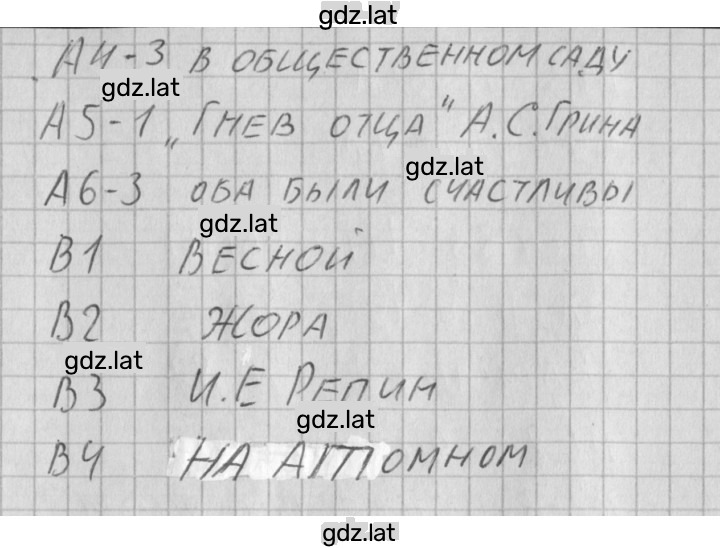 gdz.lat
А4-3 В ОБЩЕСТВЕННОМ САДУ
gdz.lat
А5-1 „ГНЕВ ОТЦА" А.С.ГРИНА
gdz.lat
А6-3 ОБА БЫЛИ СЧАСТЛИВЫ
gdz.lat
В1 ВЕСНОЙ
В2 ЖОРА
gdz.lat
В3 И.Е РЕПИН
gdz.lat
В4 НА АТОМНОМ
gdz.lat